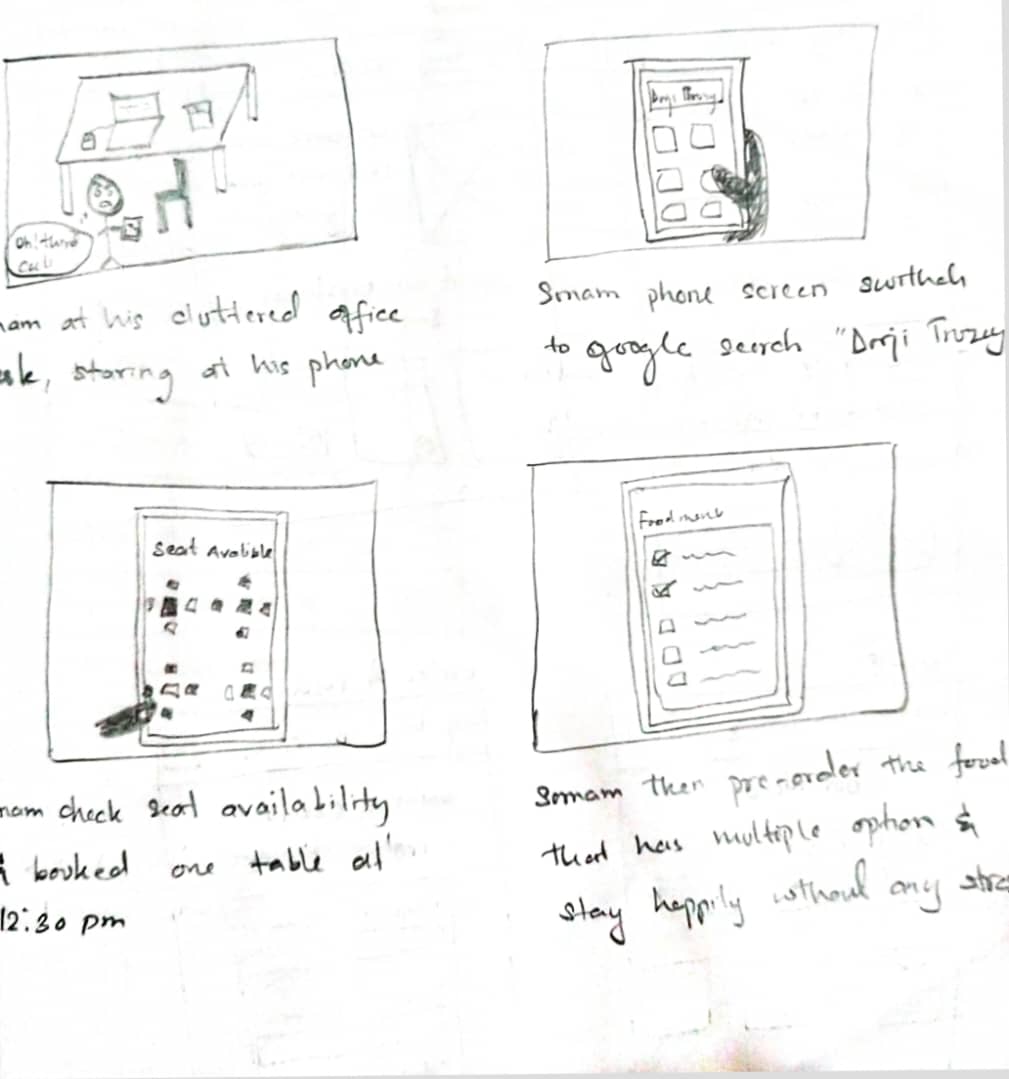 Oh! third
nam at his cluttered office
sk, staring at his phone
Dorji Truzey
Smam phone screen swithch
to google seerch "Dorji Truzey
Seat Avalible
nam check seat availability
booked one table at
12:30 pm
Food menu
Somam then pre-order the food
that has multiple option &
stay happily without any stre